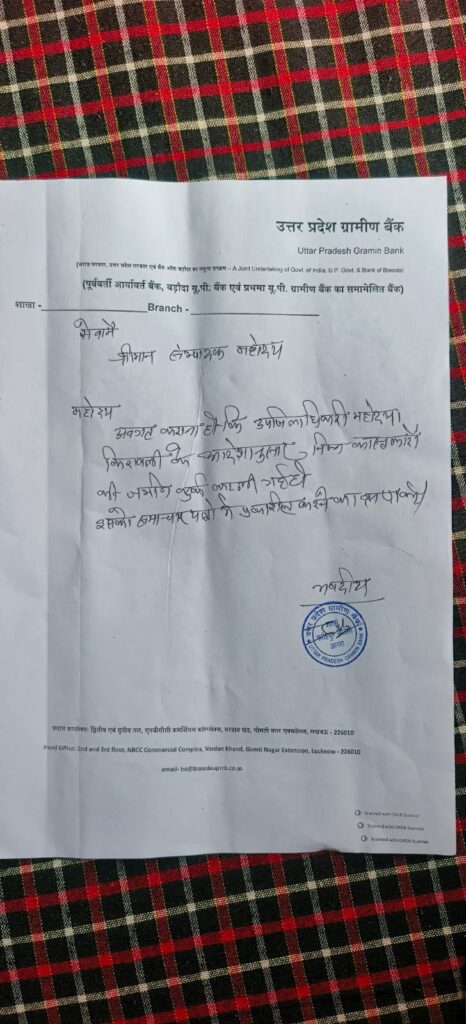 उत्तर प्रदेश ग्रामीण बैंक
Uttar Pradesh Gramin Bank
(भारत सरकार, उत्तर प्रदेश सरकार एवं बैंक ऑफ बड़ौदा का संयुक्त उपक्रम – A Joint Undertaking of Govt. of India, U.P. Govt. & Bank of Baroda)
(पूर्ववर्ती आर्यावर्त बैंक, बड़ौदा यू.पी. बैंक एवं प्रथमा यू.पी. ग्रामीण बैंक का समामेलित बैंक)
शाखा - Branch -
सेवामै
श्रीमान संम्पादक महोदय
महोदय
अवगत कराना है कि उपजिलाधिकारी महोदय
किरावली के आदेशानुसार, निम्न कास्तकारों
की जमीन कुर्क करली गईहै
इसको समाचार पत्रों मे प्रकाशित करने का
भवदीय
उत्तर प्रदेश ग्रामीण बैंक
आगरा
UTTAR PRADESH GRAMIN BANK
प्रधान कार्यालय: द्वितीय एवं तृतीय तल, एनबीसीसी कमर्शियल कॉम्प्लेक्स, वरदान खंड, गोमती नगर एक्सटेंशन, लखनऊ - 226010
Head Office: 2nd and 3rd floor, NBCC Commercial Complex, Vardan Khand, Gomti Nagar Extension, Lucknow - 226010
email- ho@barodauprrb.co.in
Scanned with OKEN Scanner
Scanned with OKEN Scanner
Scanned with OKEN Scanner